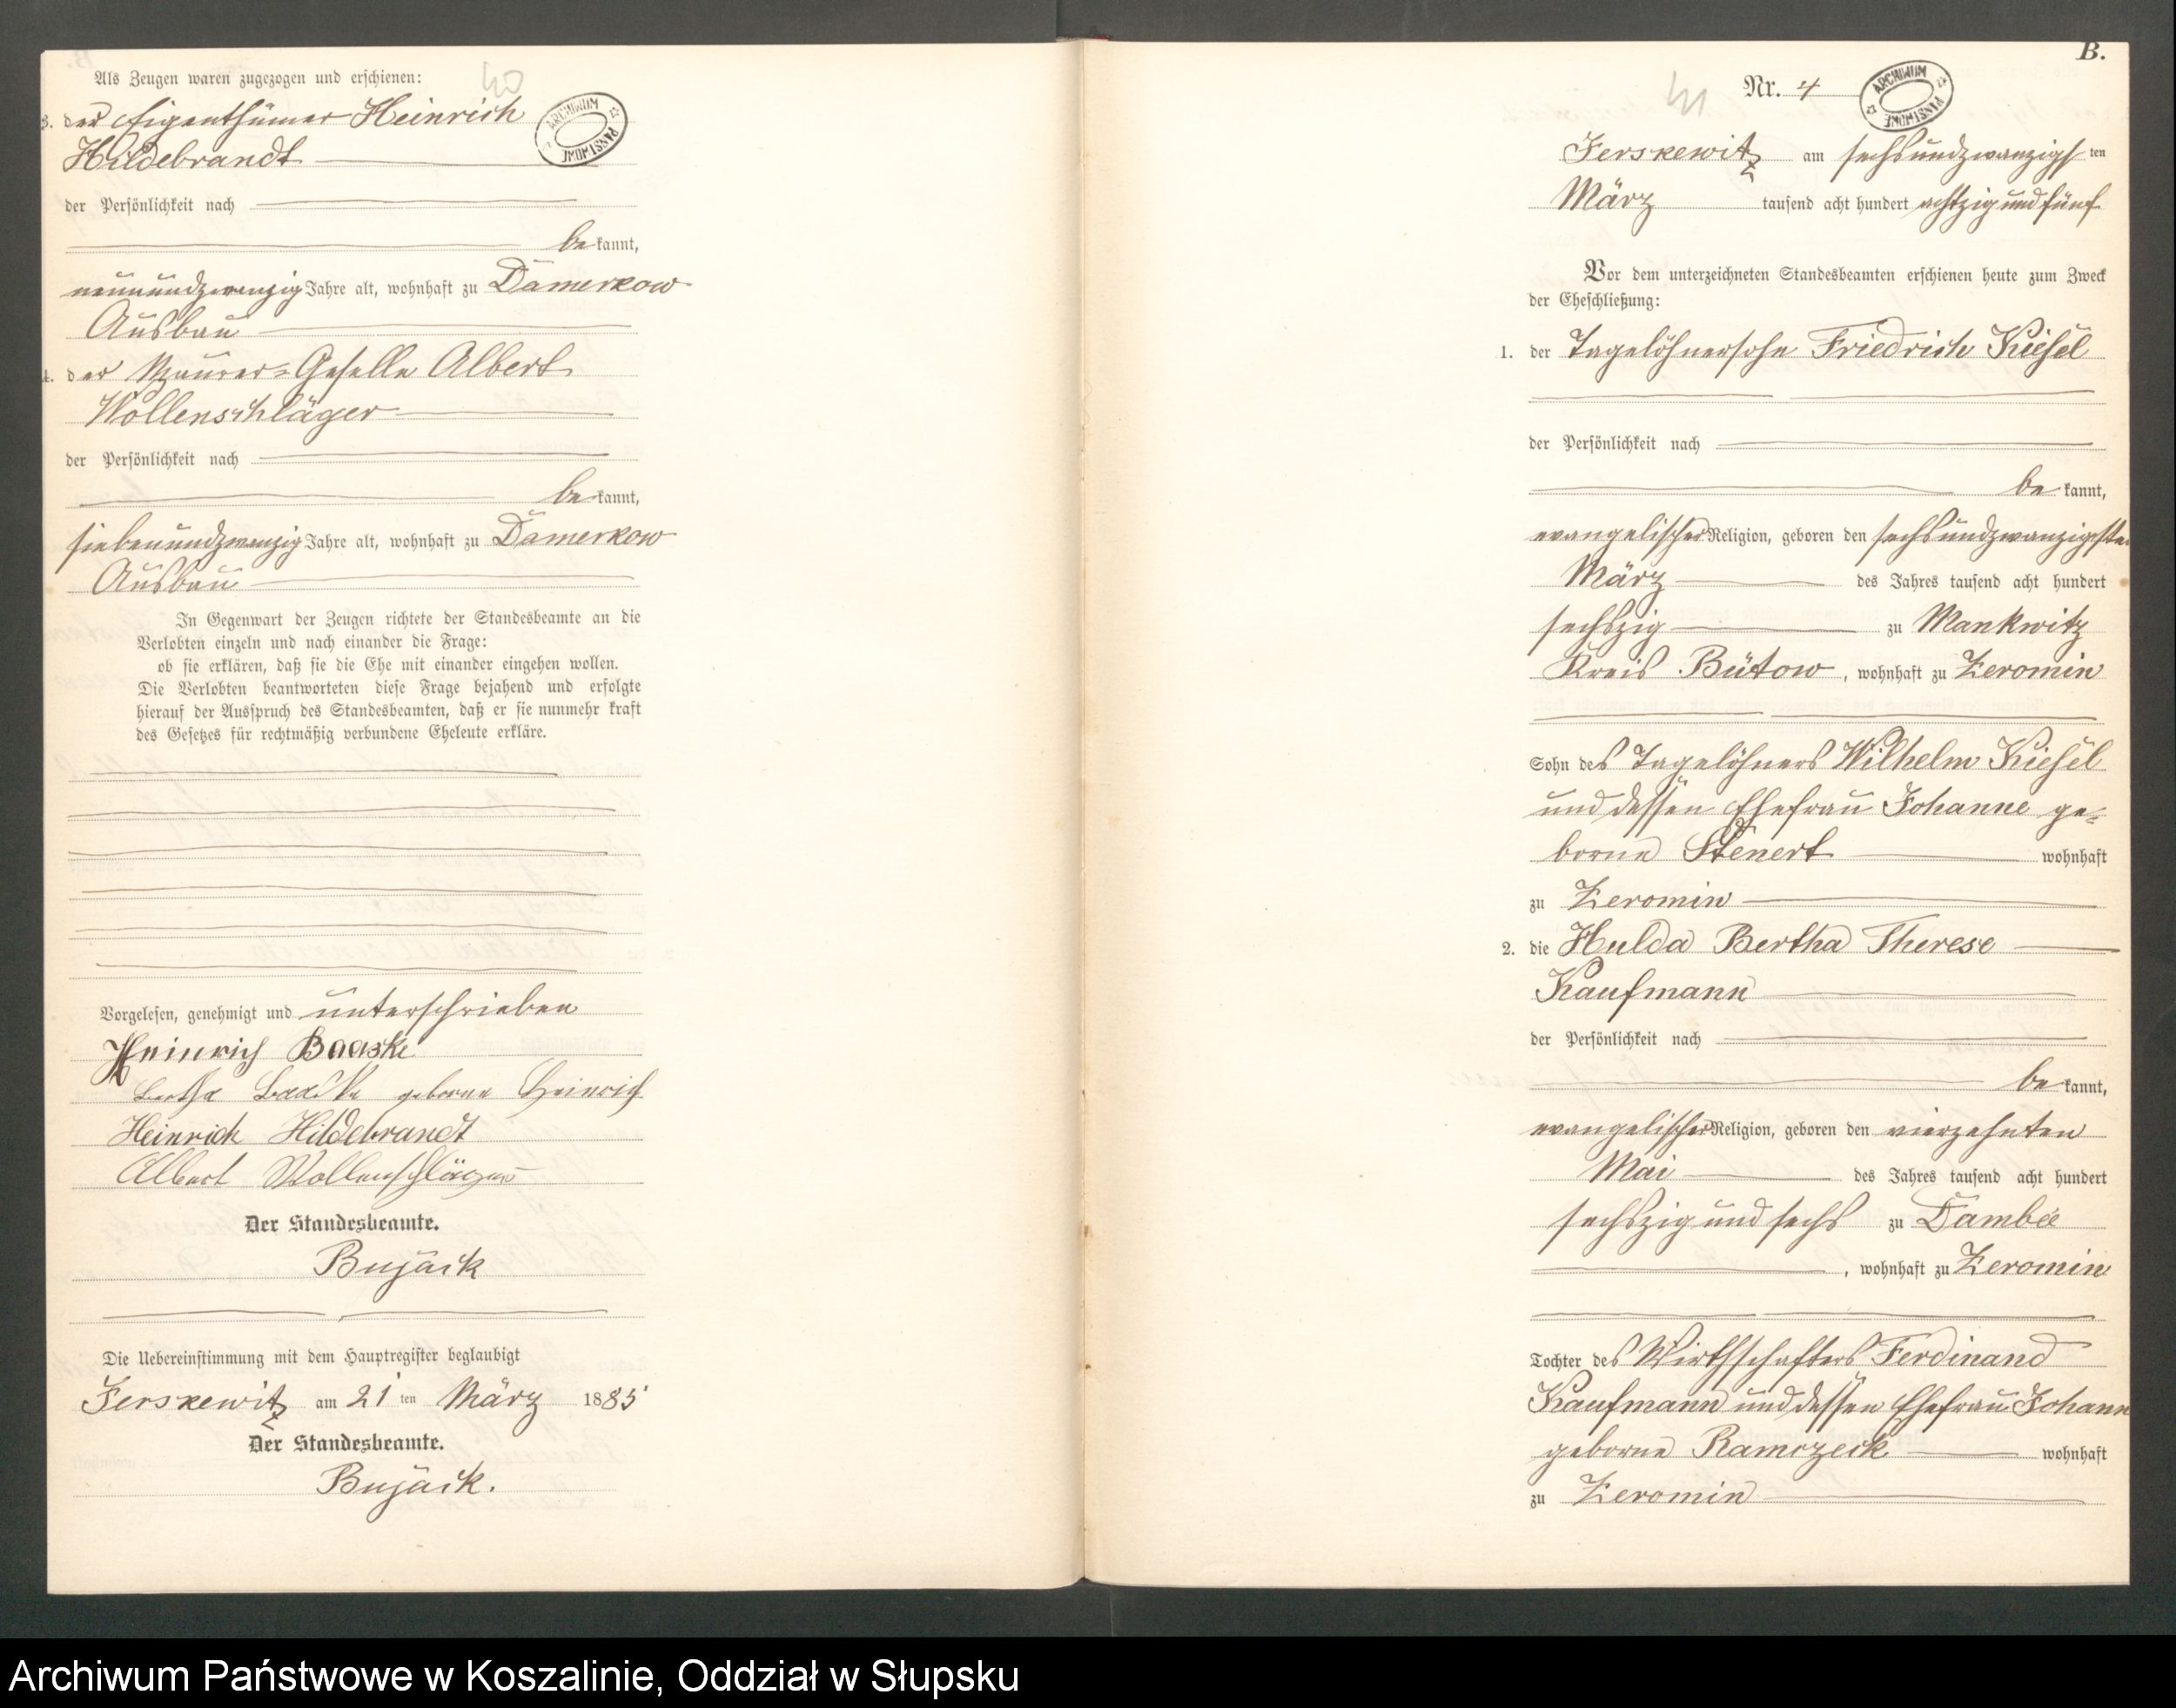 Als Zeugen waren zugezogen und erschienen:
40
3. der Eigenthümer Heinrich
Hildebrandt
ARCHIWUM PAŃSTWOWE
der Persönlichkeit nach
be kannt,
neunundzwanzig Jahre alt, wohnhaft zu Damerkow
Ausbau
4. der Maurer-Geselle Albert
Wollenschläger
der Persönlichkeit nach
be kannt,
siebenundzwanzig Jahre alt, wohnhaft zu Damerkow
Ausbau
In Gegenwart der Zeugen richtete der Standesbeamte an die
Verlobten einzeln und nach einander die Frage:
ob sie erklären, daß sie die Ehe mit einander eingehen wollen.
Die Verlobten beantworteten diese Frage bejahend und erfolgte
hierauf der Ausspruch des Standesbeamten, daß er sie nunmehr kraft
des Gesetzes für rechtmäßig verbundene Eheleute erkläre.
Vorgelesen, genehmigt und unterschrieben
Heinrich Baaske
Bertha Baaske geborne Heinrich
Heinrich Hildebrandt
Albert Wollenschläger
Der Standesbeamte.
Bujack
Die Uebereinstimmung mit dem Hauptregister beglaubigt
Jerskewitz am 21 ten März 1885
Der Standesbeamte.
Bujack.
B.
41
Nr. 4
ARCHIWUM PAŃSTWOWE
Jerskewitz am sechsundzwanzigs ten
März tausend acht hundert achtzig und fünf
Vor dem unterzeichneten Standesbeamten erschienen heute zum Zweck
der Eheschließung:
1. der Tagelöhnersohn Friedrich Kiesel
der Persönlichkeit nach
be kannt,
evangelischer Religion, geboren den sechsundzwanzigsten
März des Jahres tausend acht hundert
sechszig zu Mankwitz
Kreis Bütow, wohnhaft zu Zeromin
Sohn des Tagelöhners Wilhelm Kiesel
und dessen Ehefrau Johanne ge=
borne Stenert wohnhaft
zu Zeromin
2. die Hulda Bertha Therese
Kaufmann
der Persönlichkeit nach
be kannt,
evangelischer Religion, geboren den vierzehnten
Mai des Jahres tausend acht hundert
sechszig und sechs zu Dambee
, wohnhaft zu Zeromin
Tochter des Wirthschafters Ferdinand
Kaufmann und dessen Ehefrau Johann
geborne Ramczeck wohnhaft
zu Zeromin
Archiwum Państwowe w Koszalinie, Oddział w Słupsku